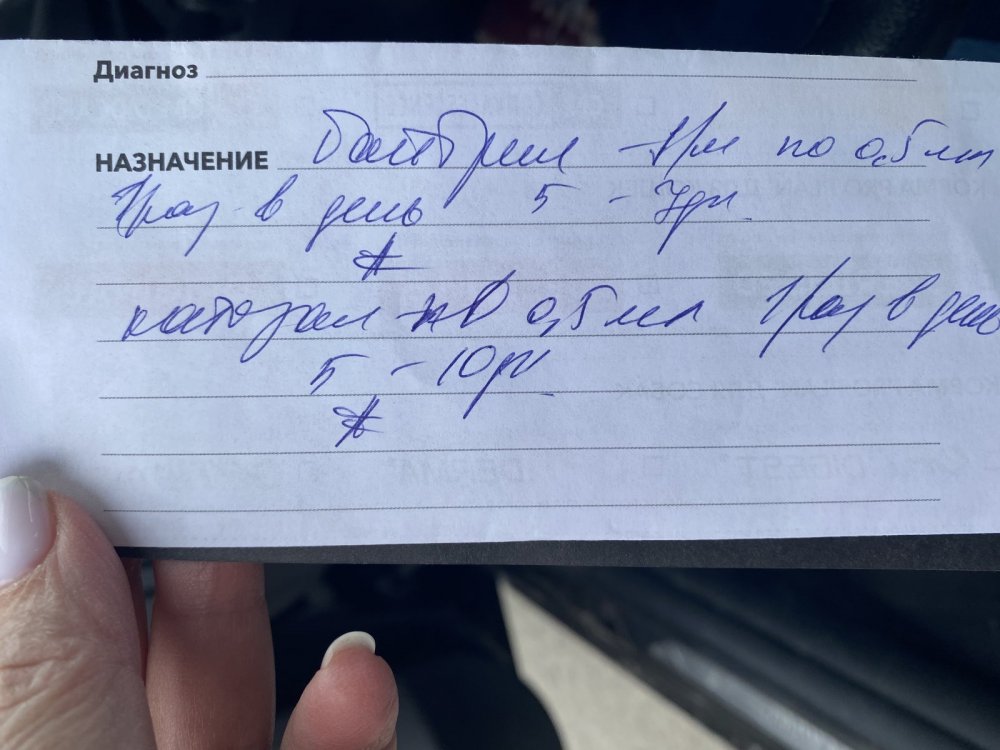 Диагноз
НАЗНАЧЕНИЕ Байтрил - по 0,5 мл
1 раз в день 5 - 7 дн.
катозал 0,5 мл 1 раз в день
5 - 10 дн.